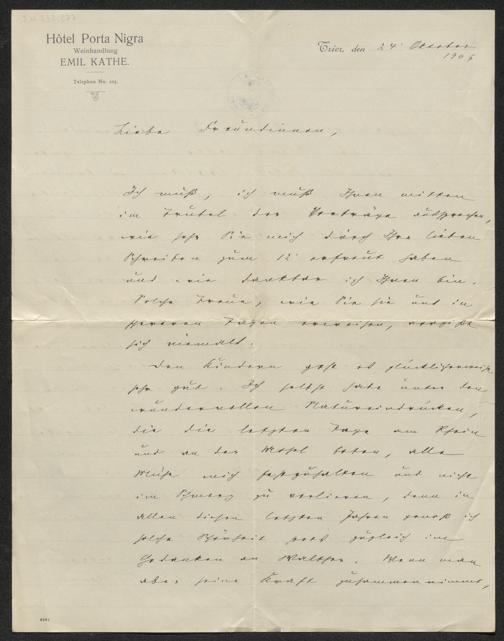 Hôtel Porta Nigra
Weinhandlung
EMIL KATHE.
Telephon No. 105.
Trier, den 24. Oktober
190
Liebe Freundinnen,
Ich muß, ich muß Ihnen mitten
im Trubel der Vorträge aussprechen,
wie sehr Sie mich durch Ihre lieben
Schreiben zum 12. erfreut haben
und wie dankbar ich Ihnen bin.
Solche Treue, wie Sie sie uns in
schweren Tagen erweisen, vergißt
sich niemals.
Den Kindern geht es glücklicherweise
sehr gut. Ich selbst habe unter den
wundervollen Natureindrücken,
die die letzten Tage am Rhein
und an der Mosel boten, alle
Mühe mich festzuhalten und nicht
im Schmerz zu verlieren, denn in
allen diesen letzten Jahren genoß ich
solche Schönheit stets zugleich im
Gedanken an Walther. Wenn man
aber seine Kraft zusammennimmt,